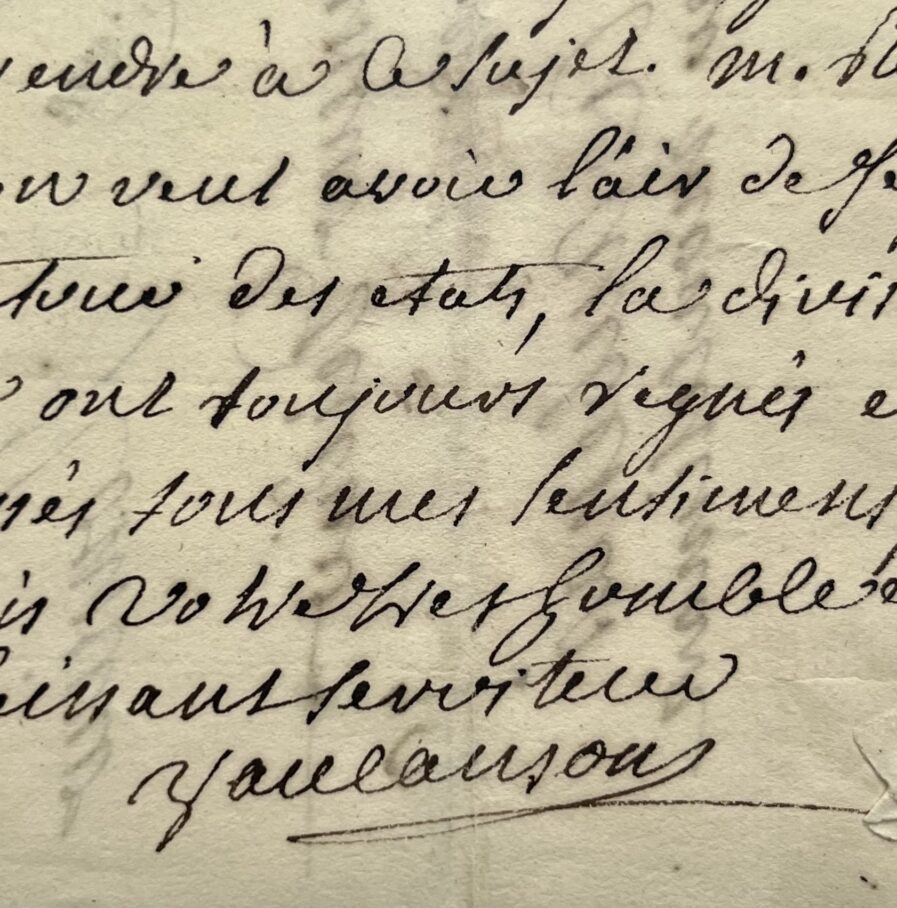 rendre à ce sujet. m.
on veut avoir l'air de
des etats, la divis
ont toujours regnés e
tous mes sentimens
is votre tres humble e
beissant serviteur